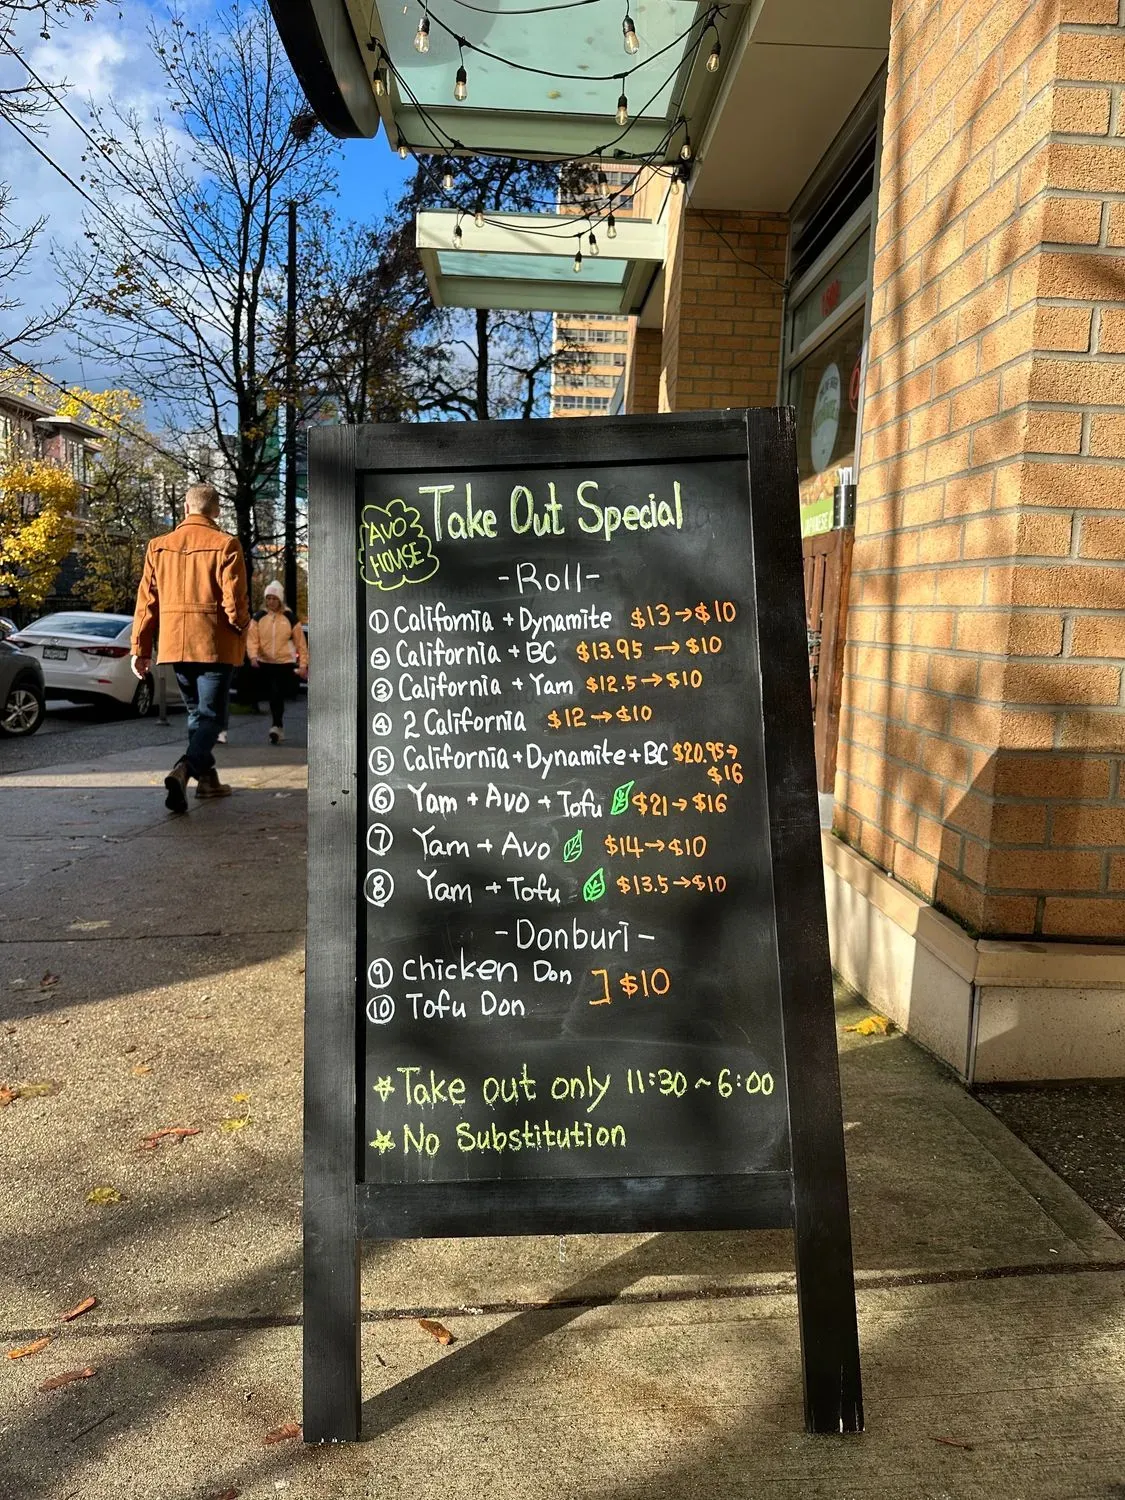 AVO
HOUSE
Take Out Special
-Roll-
① California + Dynamite $13→$10
② California + BC $13.95→$10
③ California + Yam $12.5→$10
④ 2 California $12→$10
⑤ California+Dynamite+BC $20.95→
$16
⑥ Yam + Avo + Tofu $21→$16
⑦ Yam + Avo $14→$10
⑧ Yam + Tofu $13.5→$10
-Donburi-
⑨ Chicken Don
⑩ Tofu Don
] $10
*Take out only 11:30~6:00
*No Substitution